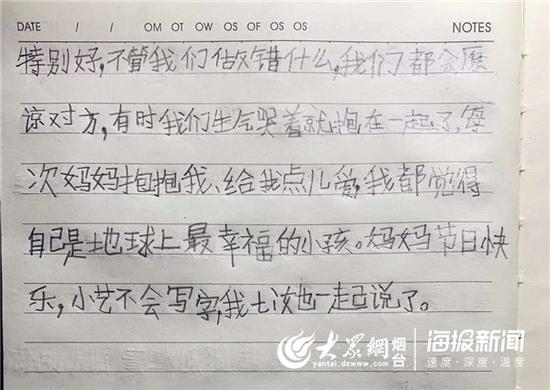 DATE / / OM OT OW OS OF OS OS NOTES
特别好,不管我们做错什么,我们都会原
谅对方,有时我们生气哭着就抱在一起了,每
次妈妈抱抱我、给我点儿爱,我都觉得
自己是地球上最幸福的小孩。妈妈节日快
乐,小艺不会写字,我一起说了。
大眾網 烟台 海报新闻
yantai.dzwww.com 速度·深度·温度